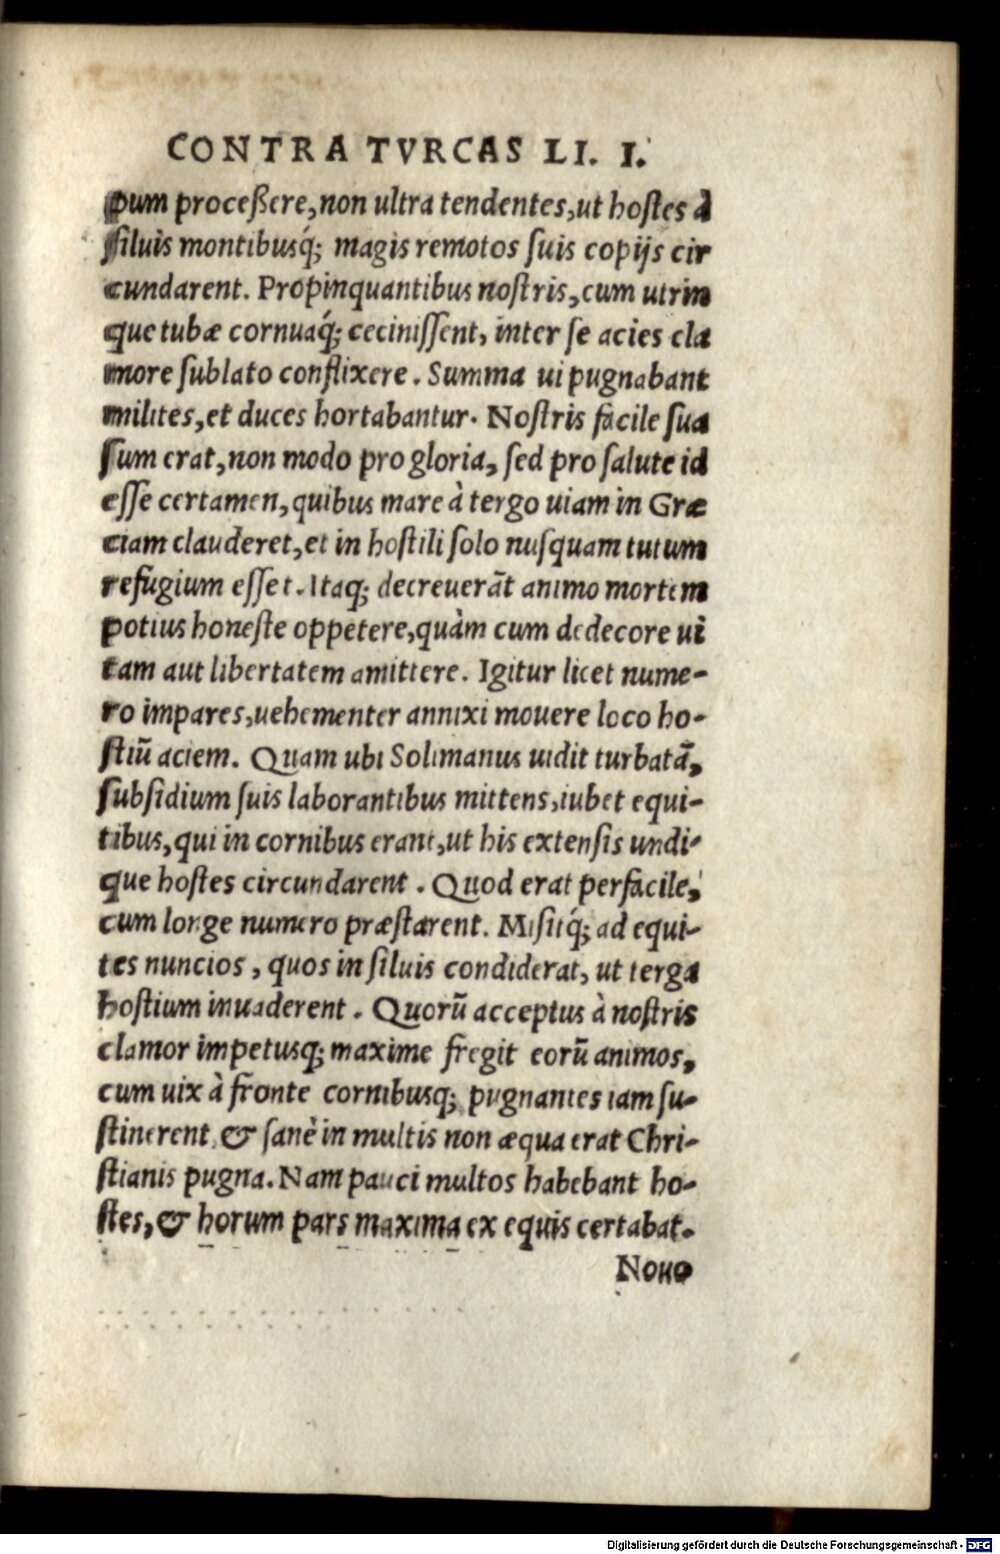 CONTRA TVRCAS LI. I.
pum proceßere, non ultra tendentes, ut hostes à
siluis montibusq́; magis remotos suis copijs cir
cundarent. Propinquantibus nostris, cum utrin
que tubæ cornuaq́; cecinissent, inter se acies cla
more sublato conflixere. Summa ui pugnabant
milites, et duces hortabantur. Nostris facile sua
sum erat, non modo pro gloria, sed pro salute id
esse certamen, quibus mare à tergo uiam in Græ
ciam clauderet, et in hostili solo nusquam tutum
refugium esset. Itaq; decreuerāt animo mortem
potius honeste oppetere, quàm cum dedecore ui
tam aut libertatem amittere. Igitur licet nume-
ro impares, uehementer annixi mouere loco ho-
stiū aciem. Quam ubi Solimanus uidit turbatā,
subsidium suis laborantibus mittens, iubet equi-
tibus, qui in cornibus erant, ut his extensis undi-
que hostes circundarent. Quod erat perfacile,
cum longe numero præstarent. Misitq́; ad equi-
tes nuncios, quos in siluis condiderat, ut terga
hostium inuaderent. Quorū acceptus à nostris
clamor impetusq; maxime fregit eorū animos,
cum uix à fronte cornibusq; pugnantes iam su-
stinerent, & sanè in multis non æqua erat Chri-
stianis pugna. Nam pauci multos habebant ho-
stes, & horum pars maxima ex equis certabat.
Nouo
Digitalisierung gefördert durch die Deutsche Forschungsgemeinschaft - DFG